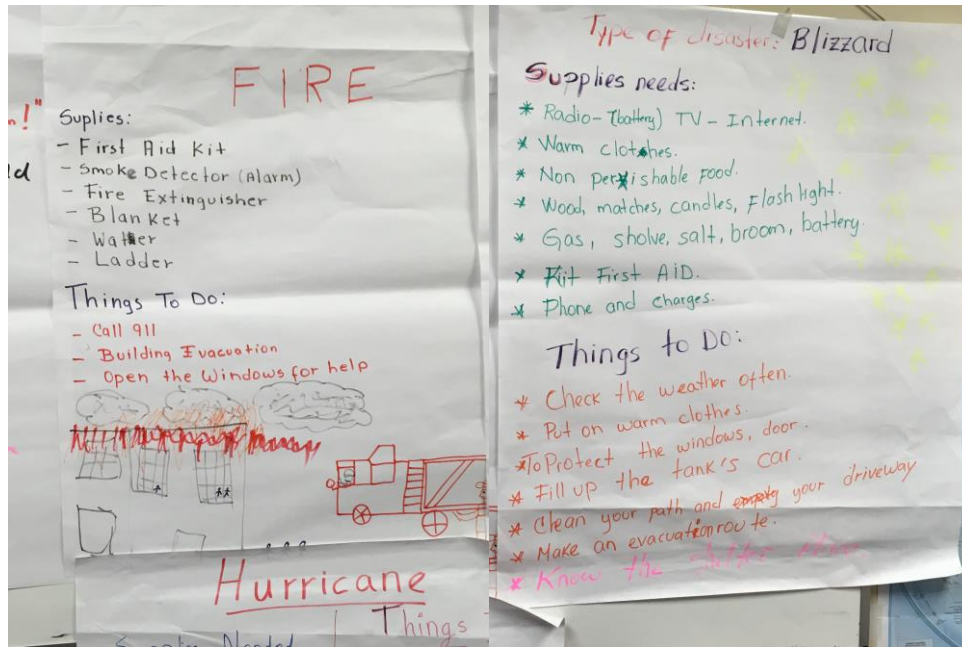 n!"
d
FIRE
Suplies:
- First Aid Kit
- Smoke Detector (Alarm)
- Fire Extinguisher
- Blanket
- Water
- Ladder
Things To Do:
- Call 911
- Building Evacuation
- Open the Windows for help
Hurricane
Things
Needed
Type of disaster: Blizzard
Supplies needs:
* Radio - (battery) TV - Internet.
* Warm clothes.
* Non perishable Food.
* Wood, matches, candles, Flash light.
* Gas, sholve, salt, broom, battery.
* Kit First AiD.
* Phone and charges.
Things to Do:
* Check the weather often.
* Put on warm clothes.
* To Protect the windows, door.
* Fill up the tank's car.
* Clean your path and your driveway
* Make an evacuation route.
* Know the